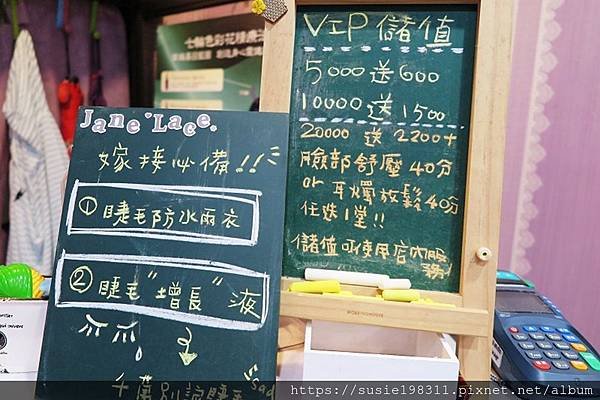 Jane Lace.
嫁接必備!!
①睫毛防水雨衣
②睫毛"增長"液
千萬別說睫毛
sad
VIP儲值
5000送600
10000送1500
20000送2200+
臉部舒壓40分
or 耳燭放鬆40分
任选1堂!!
儲值可使用店內服務
七輪色彩花精療法
https://susie198311.pixnet.net/album